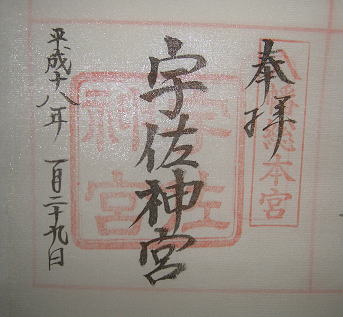 奉拝
八幡総本宮
宇佐神宮
宇佐神宮
平成十八年 一月二十九日